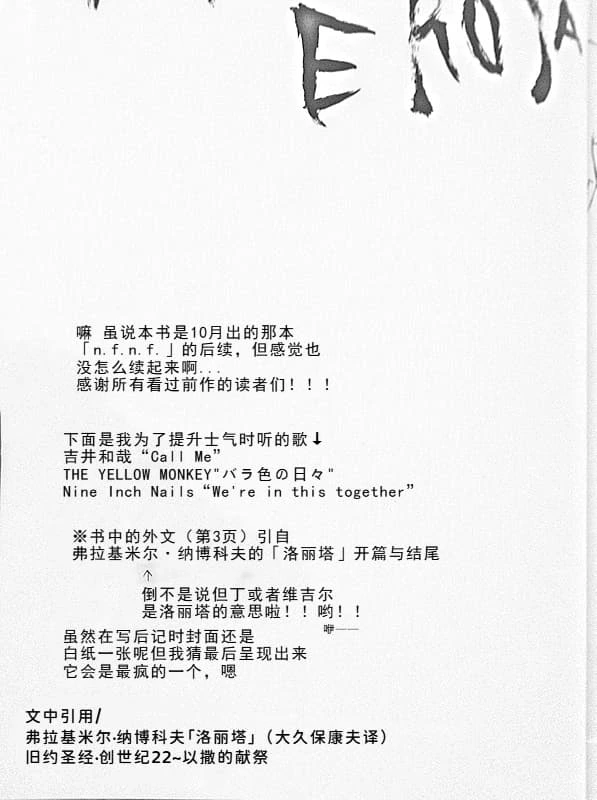 EROJA
嘛 虽说本书是10月出的那本
「n.f.n.f.」的后续，但感觉也
没怎么续起来啊...
感谢所有看过前作的读者们！！！
下面是我为了提升士气时听的歌↓
吉井和哉“Call Me”
THE YELLOW MONKEY"バラ色の日々"
Nine Inch Nails“We're in this together”
※书中的外文（第3页）引自
弗拉基米尔・纳博科夫的「洛丽塔」开篇与结尾
↑
倒不是说但丁或者维吉尔
是洛丽塔的意思啦！！哟！！
咿——
虽然在写后记时封面还是
白纸一张呢但我猜最后呈现出来
它会是最疯的一个，嗯
文中引用/
弗拉基米尔·纳博科夫「洛丽塔」（大久保康夫译）
旧约圣经·创世纪22~以撒的献祭